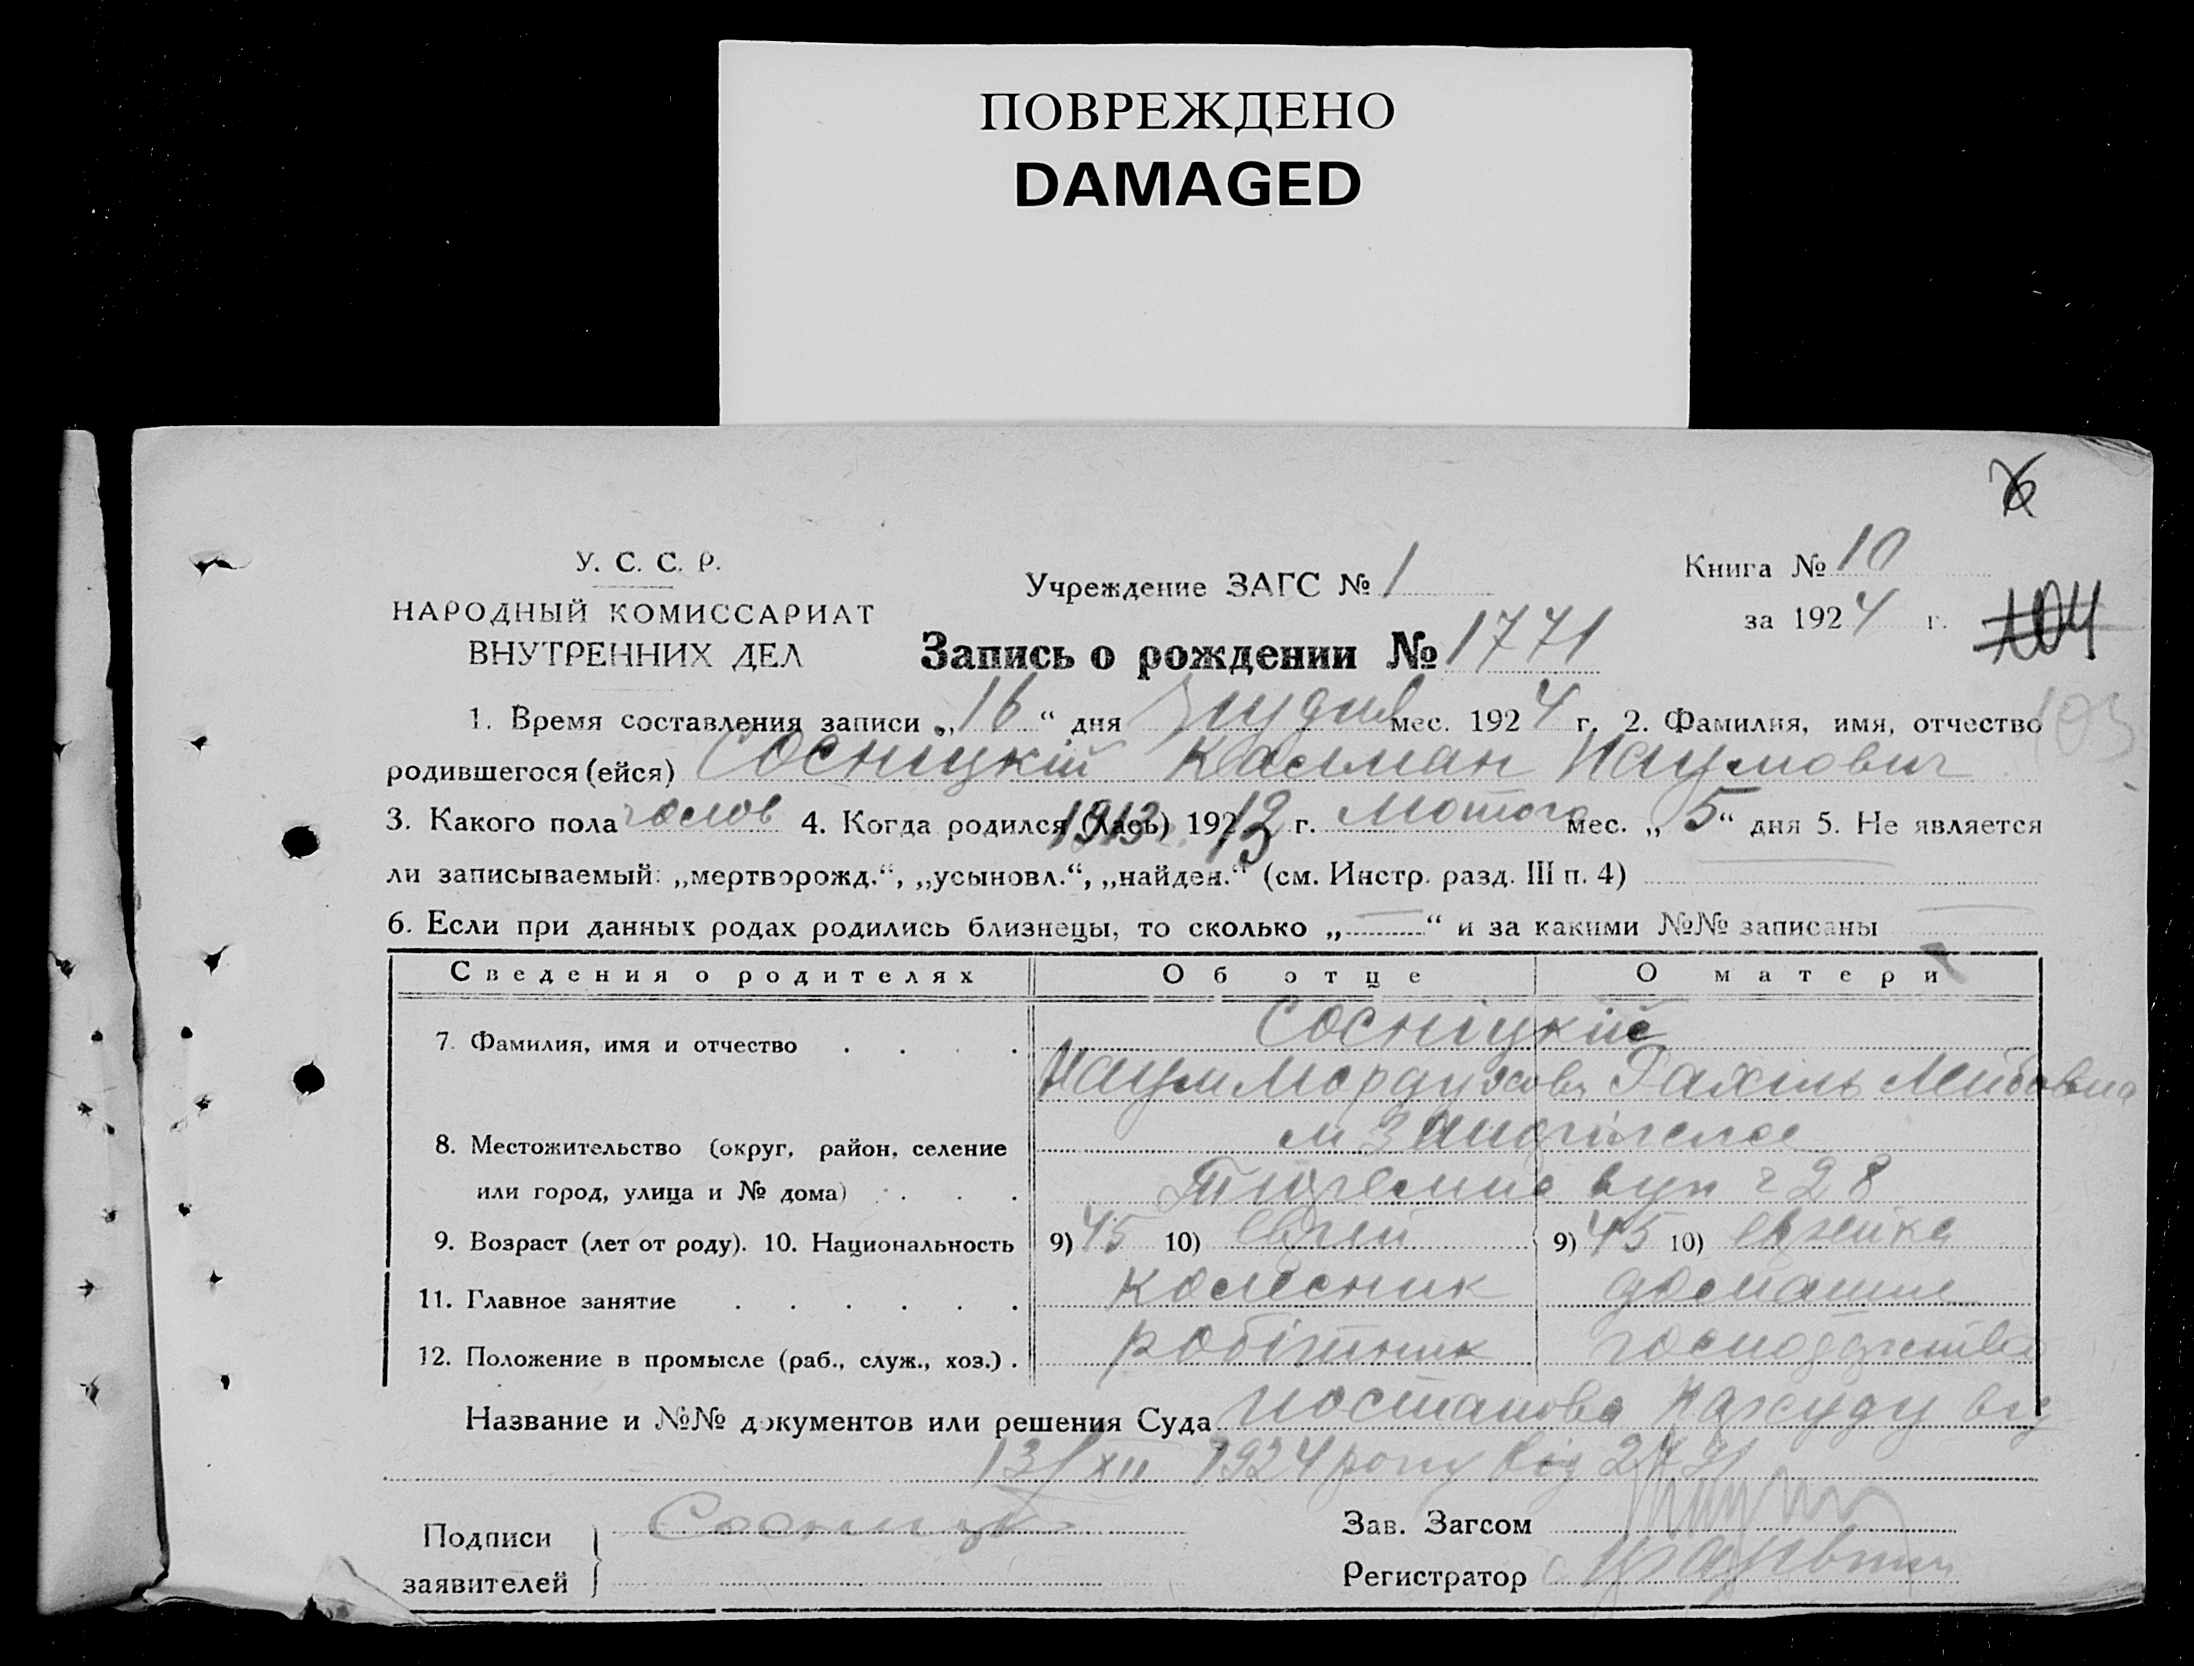 ПОВРЕЖДЕНО
DAMAGED
У. С. С. Р.
НАРОДНЫЙ КОМИССАРИАТ
ВНУТРЕННИХ ДЕЛ
Учреждение ЗАГС № 1
Книга № 10
за 1924 г.
104
103
Запись о рождении № 1771
1. Время составления записи „16“ дня Грудня мес. 1924 г. 2. Фамилия, имя, отчество
родившегося (ейся) Сосніцкій Калман Наумович
3. Какого пола чолов 4. Когда родился (лась) 192 г. Лютого мес. „5“ дня 5. Не является
ли записываемый: „мертворожд.“, „усыновл.“, „найден.“ (см. Инстр. разд. III п. 4)
6. Если при данных родах родились близнецы, то сколько „—“ и за какими №№ записаны
Сведения о родителях Об отце О матери
7. Фамилия, имя и отчество Сосніцкіе
Наум Мордухов. Рахіль Лейбовна
8. Местожительство (округ, район, селение
или город, улица и № дома) вул ч 28
9. Возраст (лет от роду). 10. Национальность 9) 45 10) еврей 9) 45 10) еврейка
11. Главное занятие колесник домашне
12. Положение в промысле (раб., служ., хоз.) робітник господарство
Название и №№ документов или решения Суда постанова Нарсуду від
13/XII 1924 року
Подписи
заявителей
Сосницк
Зав. Загсом
Регистратор